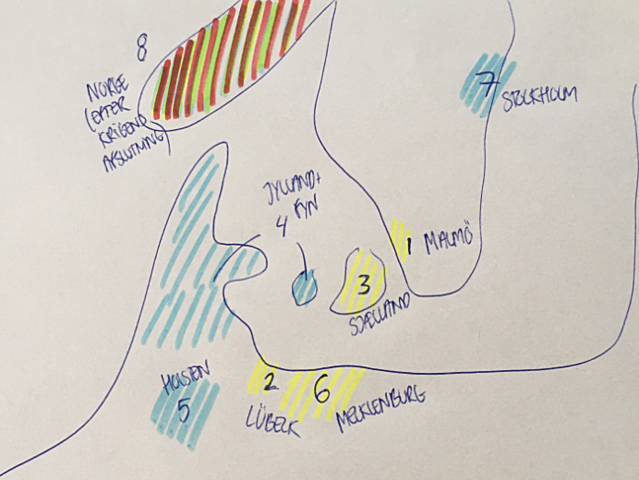 8
NORGE
(EFTER
KRIGENS
AFSLUTNING)
7
STOCKHOLM
JYLLAND+
FYN
4
1 MALMÖ
3
SJÆLLAND
HOLSTEN
5
2
LÜBECK
6
MECKLENBURG